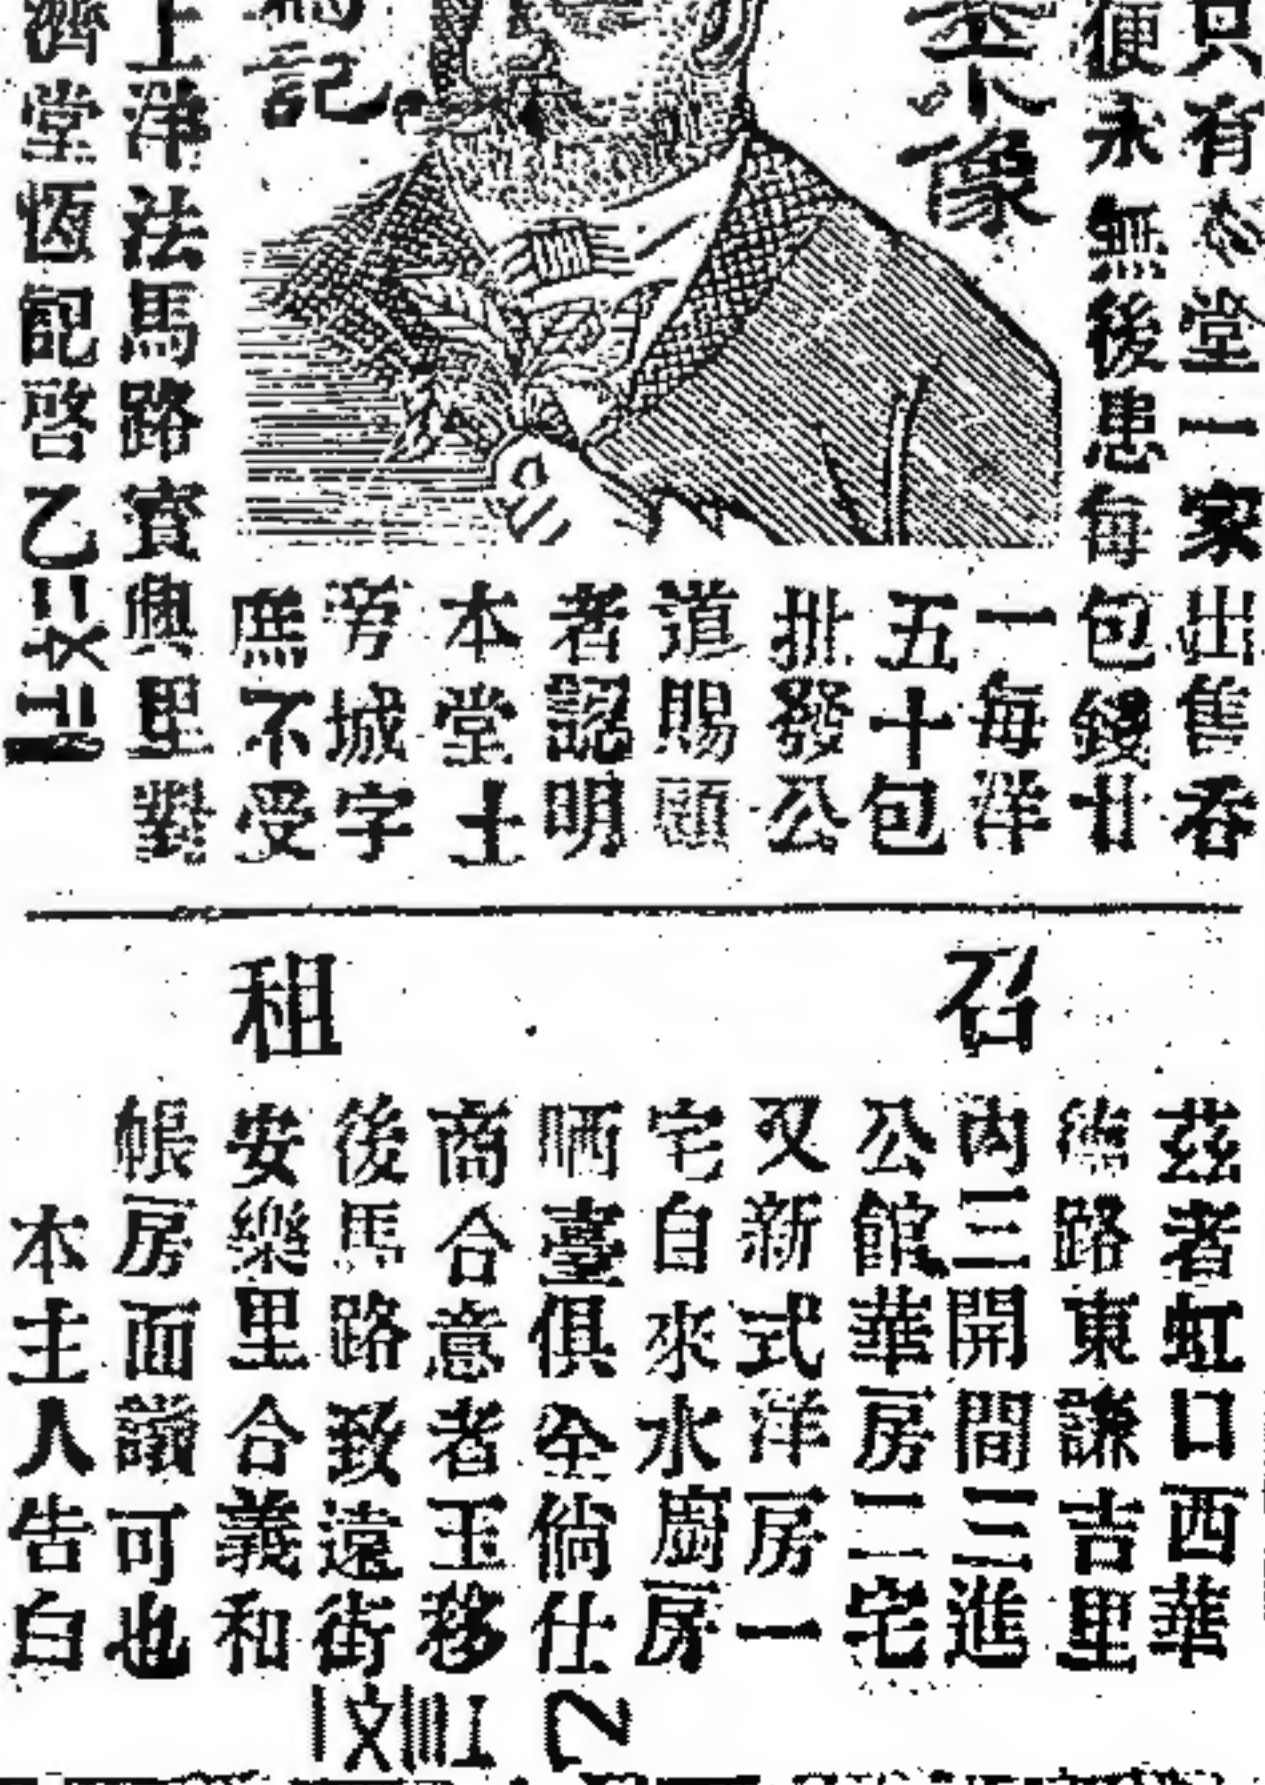 只有本堂一家出售吞
便永無後患每包錢廿
一每洋
五十包
批發公
道賜顧
者認明
本堂士
旁城字
庶不受
像
記
上洋法馬路寳興里對
濟堂恆記啓
召租
茲者虹口西華
德路東謙吉里
內三開間三進
公館華房二宅
又新式洋房一
宅自來水廚房
晒臺俱全倘仕
商合意者玉移
後馬路致遠街
安樂里合義和
帳房面議可也
本主人告白